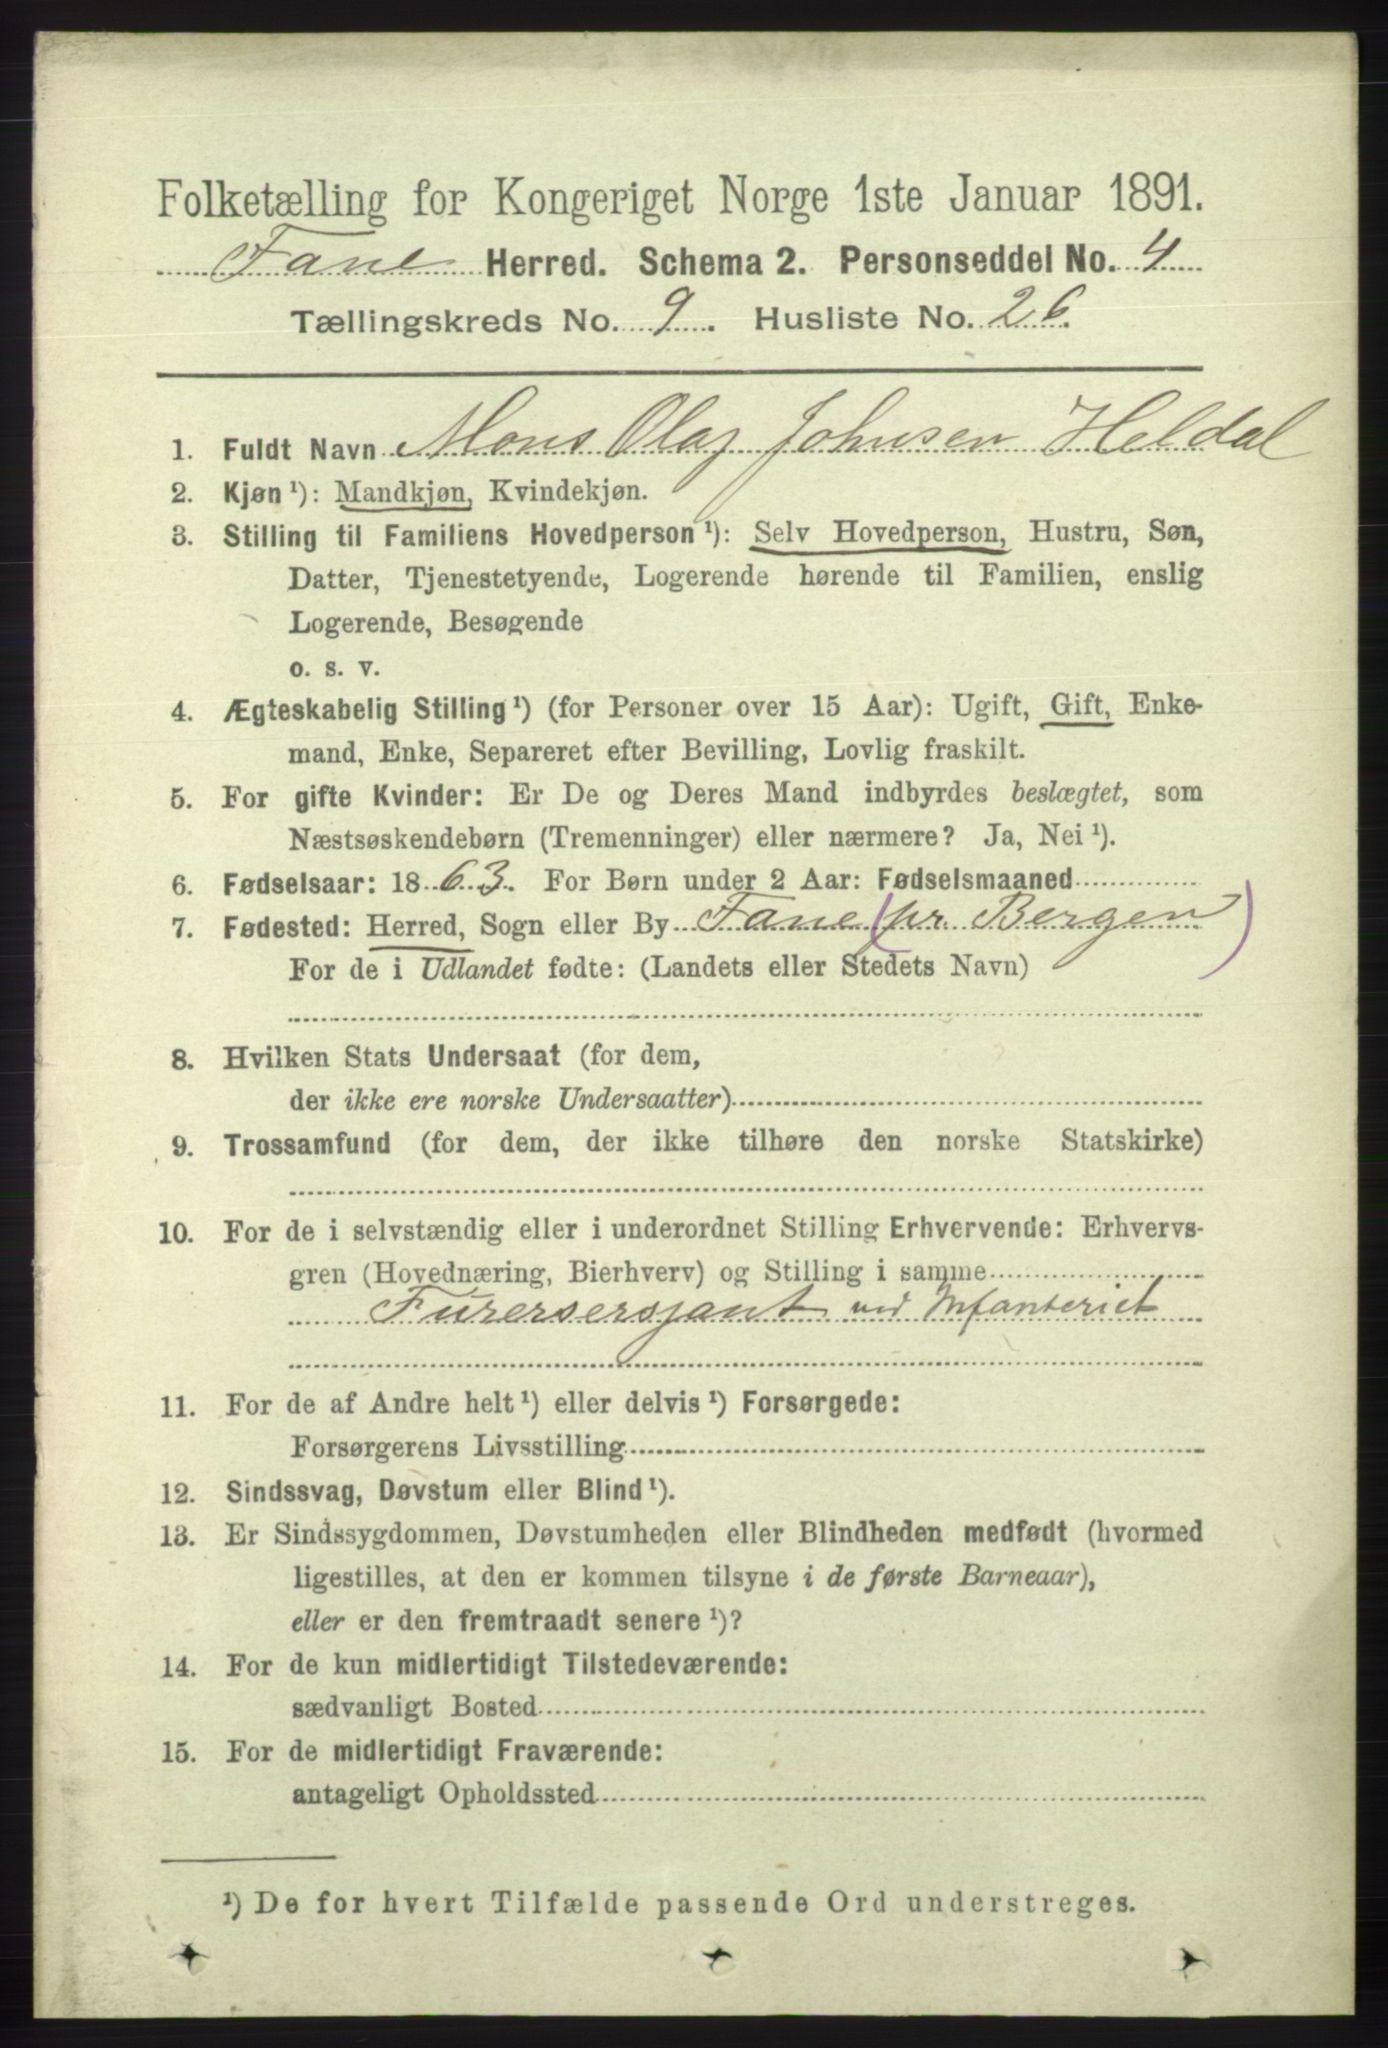 Folketælling for Kongeriget Norge 1ste Januar 1891.
Fane Herred. Schema 2. Personseddel No. 4
Tællingskreds No. 9. Husliste No. 26.
1. Fuldt Navn Mons Olaf Johnsen Heldal
2. Kjøn ¹): Mandkjøn, Kvindekjøn.
3. Stilling til Familiens Hovedperson ¹): Selv Hovedperson, Hustru, Søn,
Datter, Tjenestetyende, Logerende hørende til Familien, enslig
Logerende, Besøgende
o. s. v.
4. Ægteskabelig Stilling ¹) (for Personer over 15 Aar): Ugift, Gift, Enke-
mand, Enke, Separeret efter Bevilling, Lovlig fraskilt.
5. For gifte Kvinder: Er De og Deres Mand indbyrdes beslægtet, som
Næstsøskendebørn (Tremenninger) eller nærmere? Ja, Nei ¹).
6. Fødselsaar: 1863. For Børn under 2 Aar: Fødselsmaaned
7. Fødested: Herred, Sogn eller By Fane (pr. Bergen)
For de i Udlandet fødte: (Landets eller Stedets Navn)
8. Hvilken Stats Undersaat (for dem,
der ikke ere norske Undersaatter)
9. Trossamfund (for dem, der ikke tilhøre den norske Statskirke)
10. For de i selvstændig eller i underordnet Stilling Erhvervende: Erhvervs-
gren (Hovednæring, Bierhverv) og Stilling i samme
Furersersjant ved Infanteriet
11. For de af Andre helt ¹) eller delvis ¹) Forsørgede:
Forsørgerens Livsstilling
12. Sindssvag, Døvstum eller Blind ¹).
13. Er Sindssygdommen, Døvstumheden eller Blindheden medfødt (hvormed
ligestilles, at den er kommen tilsyne i de første Barneaar),
eller er den fremtraadt senere ¹)?
14. For de kun midlertidigt Tilstedeværende:
sædvanligt Bosted
15. For de midlertidigt Fraværende:
antageligt Opholdssted
¹) De for hvert Tilfælde passende Ord understreges.